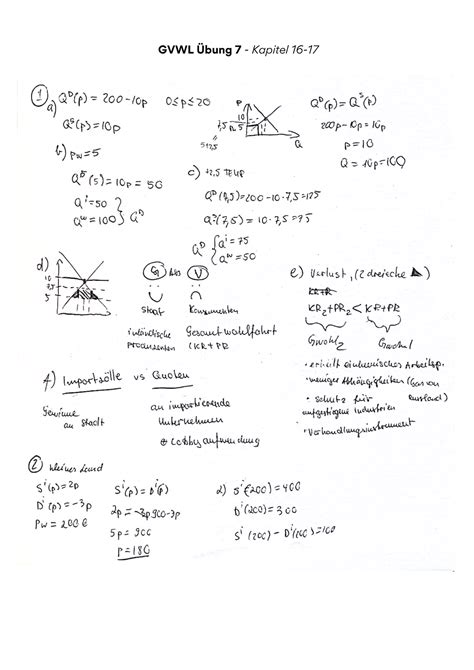 GVWL Übung 7 - Kapitel 16-17
① a) Q^D(p) = 200-10p 0≤p≤20
Q^S(p) = 10p
P
10
7,5
5
Q
Q^D(p) = Q^S(p)
200p-10p=10p
p=10
Q = 10p=100
b) p_w=5
Q^S(5) = 10p = 50
Q^i=50
Q^w=100 } Q^D
c) +2,5 TEUR
Q^D(7,5)=200-10·7,5=125
Q^S(7,5) = 10·7,5=75
Q^D { Q^i = 75
Q^w = 50
d)
10
7,5
5
G V
Staat Konsumenten
inländische Produzenten
Gesamtwohlfahrt (KR+PR
e) Verlust, (2 dreiecke)
KR+PR
KR₂+PR₂ < KR+PR
Gwohl₂ Gwohl₁
• erhält einheimisches Arbeitsp.
• weniger Abhängigkeiten (Gas von Russland)
• Schutz für aufgestigene industrien
• Verhandlungsinstrument
f) Importzölle vs Quoten
Gewinne an Staat
an importierende Unternehmen
⊕ Lobbyaufwendung
② kleines Land
S^i(p) = 2p
D^i(p) = -3p
Pw = 200€
S^i(p) = D^i(p)
2p = -3p900-3p
5p = 900
p = 180
a) S^i(200) = 400
D^i(200) = 300
S^i(200) - D^i(200) = 100